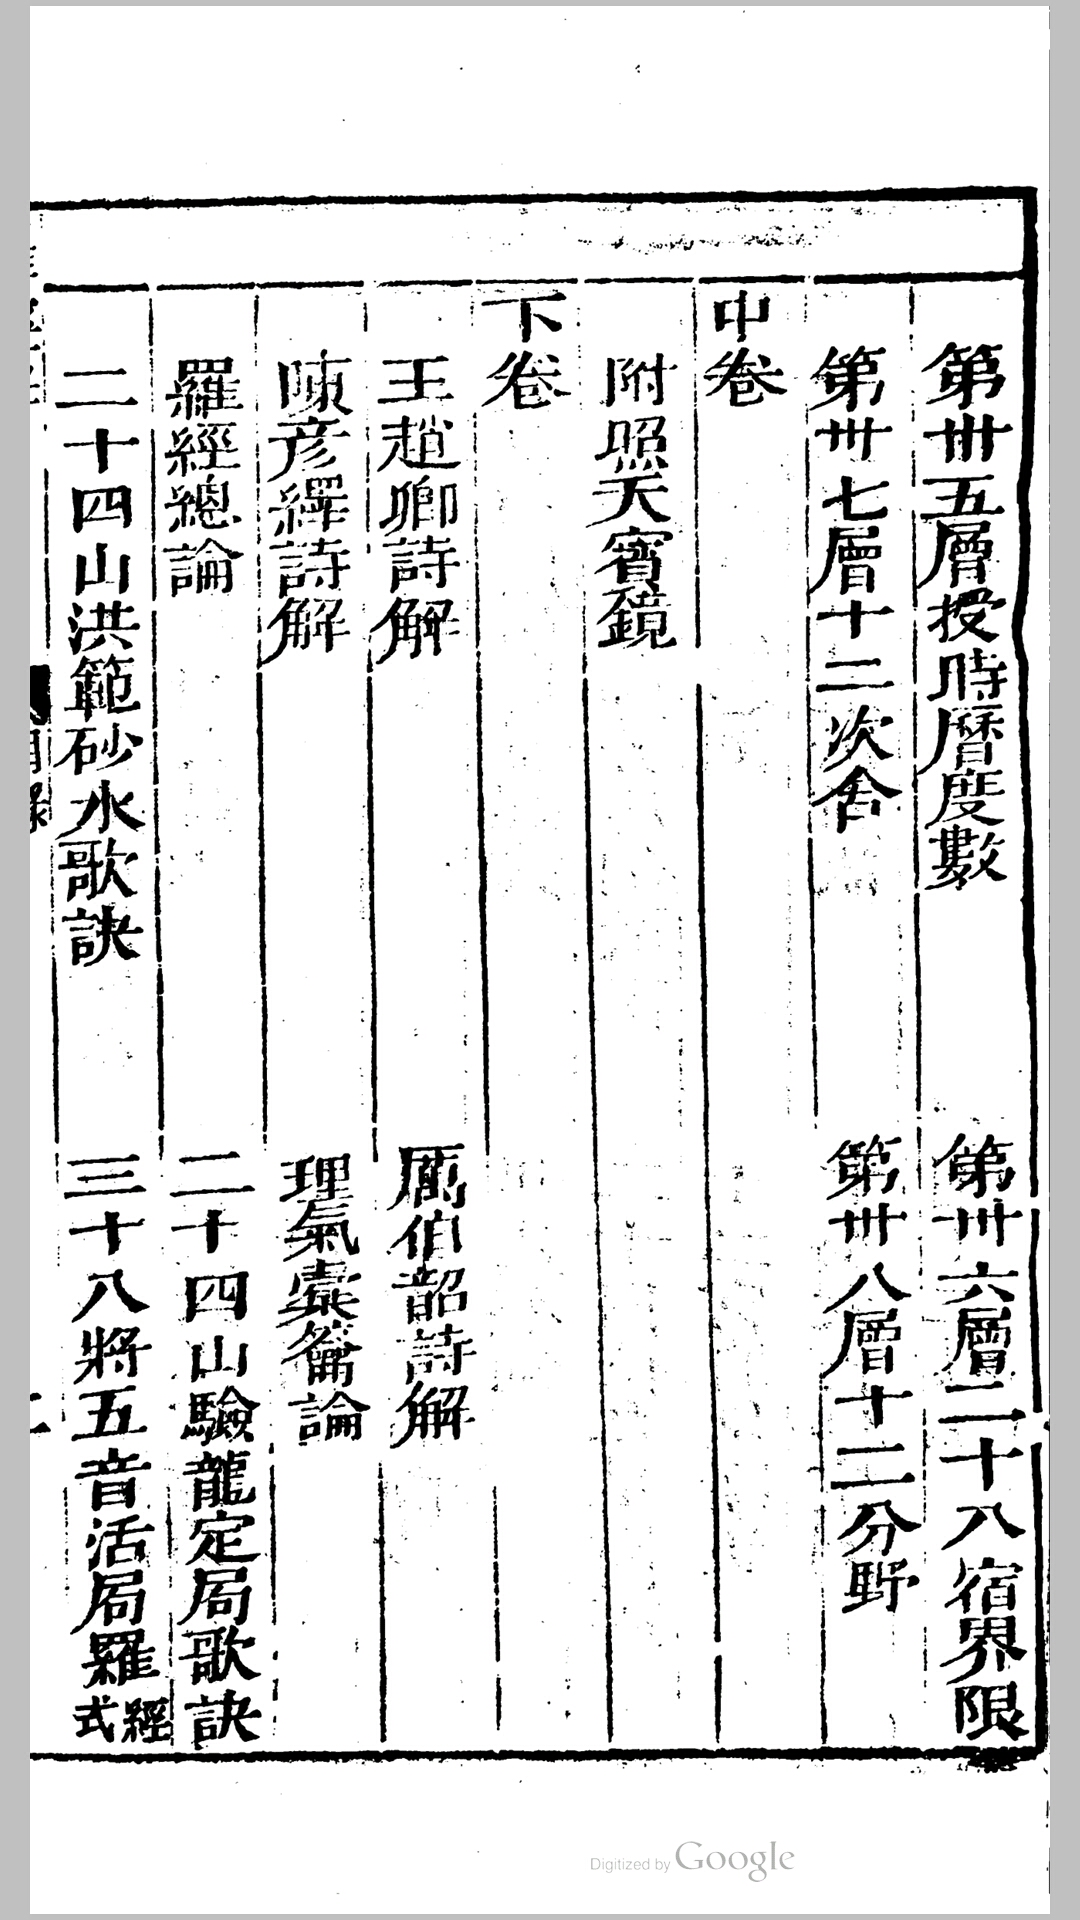 第卅五層授時曆度數　第卅六層二十八宿界限
第卅七層十二次舍　第卅八層十二分野
中卷
附照天寶鏡
下卷
王趙卿詩解　厲伯韶詩解
陳彥繹詩解　理氣橐籥論
羅經總論　二十四山驗龍定局歌訣
二十四山洪範砂水歌訣　三十八將五音活局羅經式
目錄
Digitized by Google